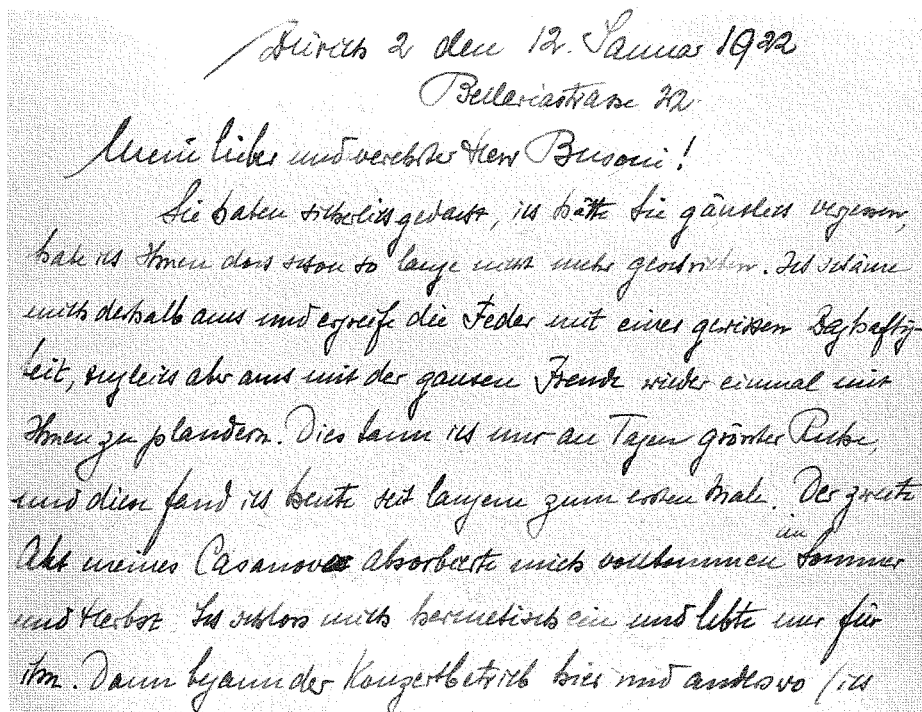 Zürich 2 den 12. Januar 1922
Bellariastrasse 22
Mein lieber und verehrter Herr Busoni!
Sie haben sicherlich gedacht, ich hätte Sie gänzlich vergessen,
habe ich Ihnen doch schon so lange nicht mehr geschrieben. Ich schäme
mich deshalb auch und ergreife die Feder mit einer gewissen Zaghaftig-
keit, zugleich aber auch mit der ganzen Freude wieder einmal mit
Ihnen zu plaudern. Dies kann ich nur an Tagen grösster Ruhe,
und diese fand ich heute seit langem zum ersten Male. Der zweite
Akt meines Casanova absorbierte mich vollkommen im Sommer
und Herbst. Ich schloss mich hermetisch ein und lebte nur für
ihn. Dann begann der Konzertbetrieb hier und anderswo (ich